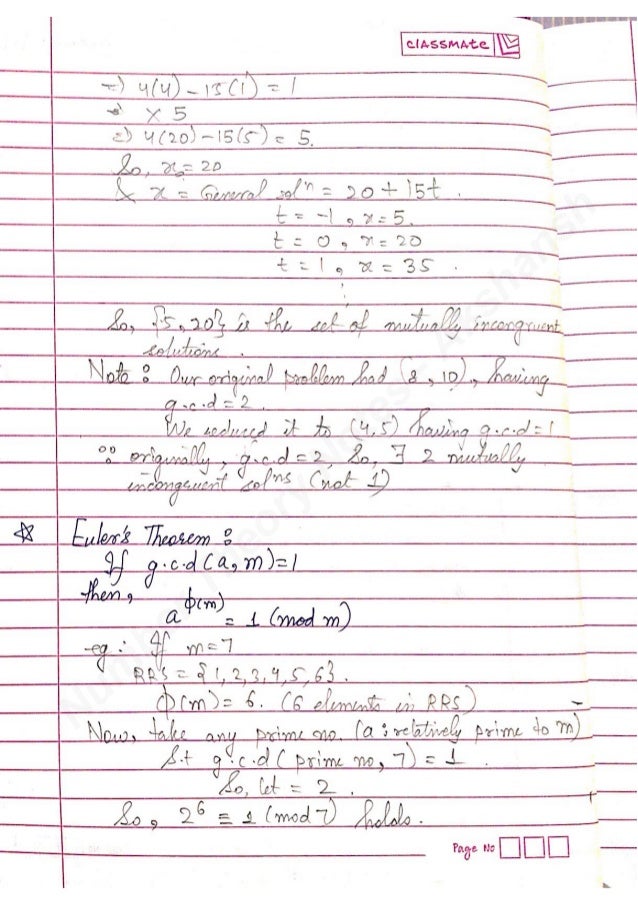 classmate
=) 4(4) - 15(1) = 1
=) × 5
=) 4(20) - 15(5) = 5.
So, x₀ = 20
& x = General solⁿ = 20 + 15t .
t = -1, x = 5.
t = 0, x = 20
t = 1, x = 35 .
⋮
So, {5, 20} is the set of mutually incongruent
solutions .
Note : Our original problem had (8, 10), having
g.c.d = 2 .
We reduced it to (4,5) having g.c.d = 1
∵ originally, g.c.d = 2, So, ∃ 2 mutually
incongruent solⁿs (not 1)
☆ Euler's Theorem :
If g.c.d (a, m) = 1
then,
a^ϕ(m) ≡ 1 (mod m)
eg : If m = 7
RRS = {1, 2, 3, 4, 5, 6} .
ϕ(m) = 6. (6 elements in RRS)
Now, take any prime no. (a : relatively prime to m)
S.t g.c.d ( prime no, 7) = 1 .
So, let = 2 .
So, 2⁶ ≡ 1 (mod 7) holds.
Page No